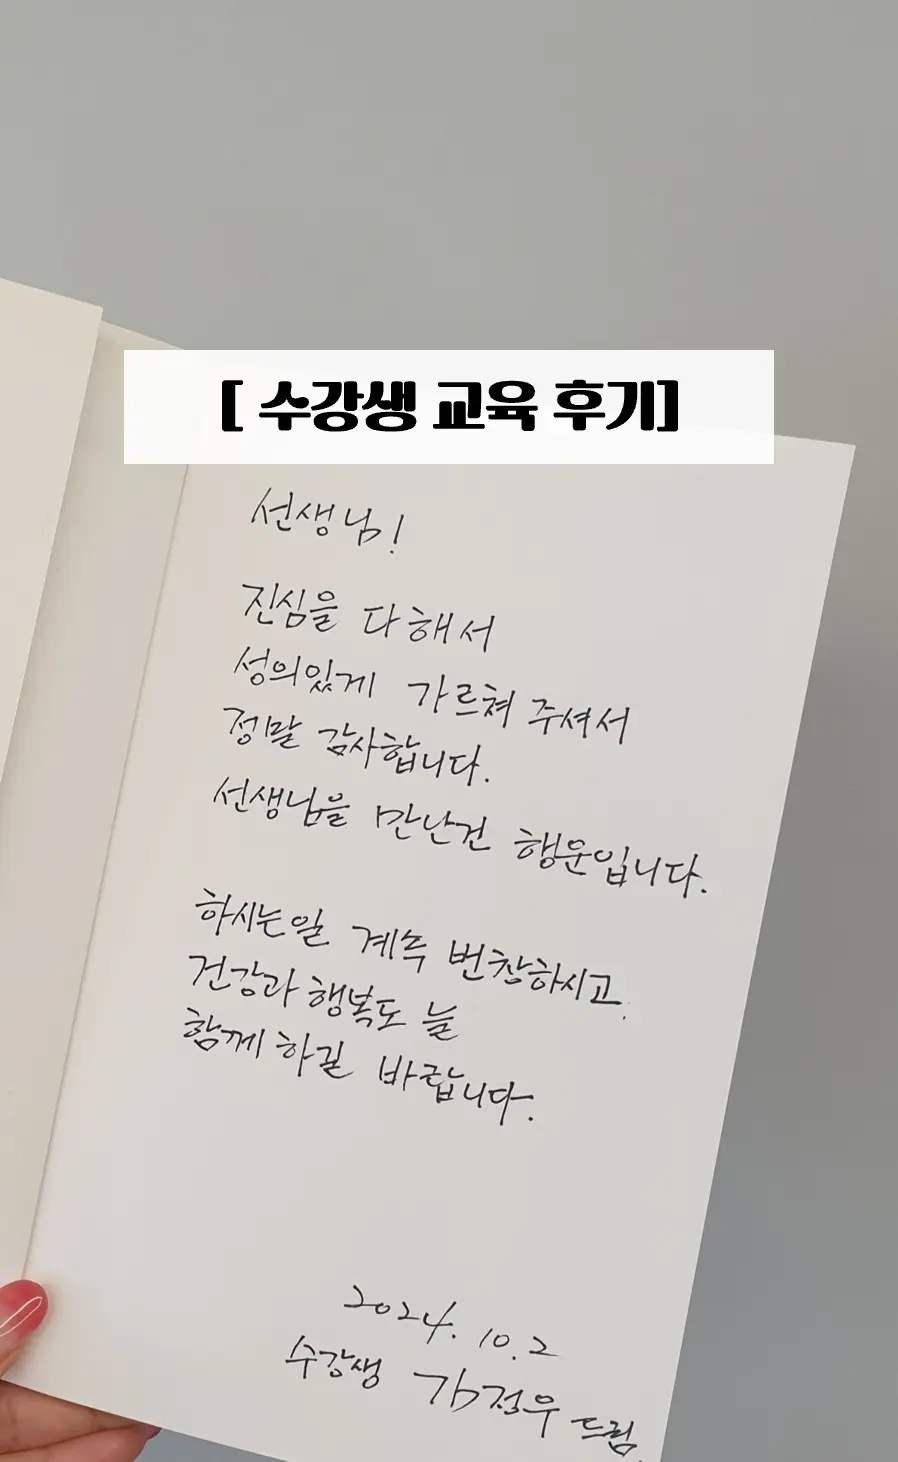 [ 수강생 교육 후기]
선생님!
진심을 다해서
성의있게 가르쳐 주셔서
정말 감사합니다.
선생님을 만난건 행운입니다.
하시는일 계속 번창하시고.
건강과 행복도 늘
함께 하길 바랍니다.
2024. 10. 2
수강생 김정우 드림.